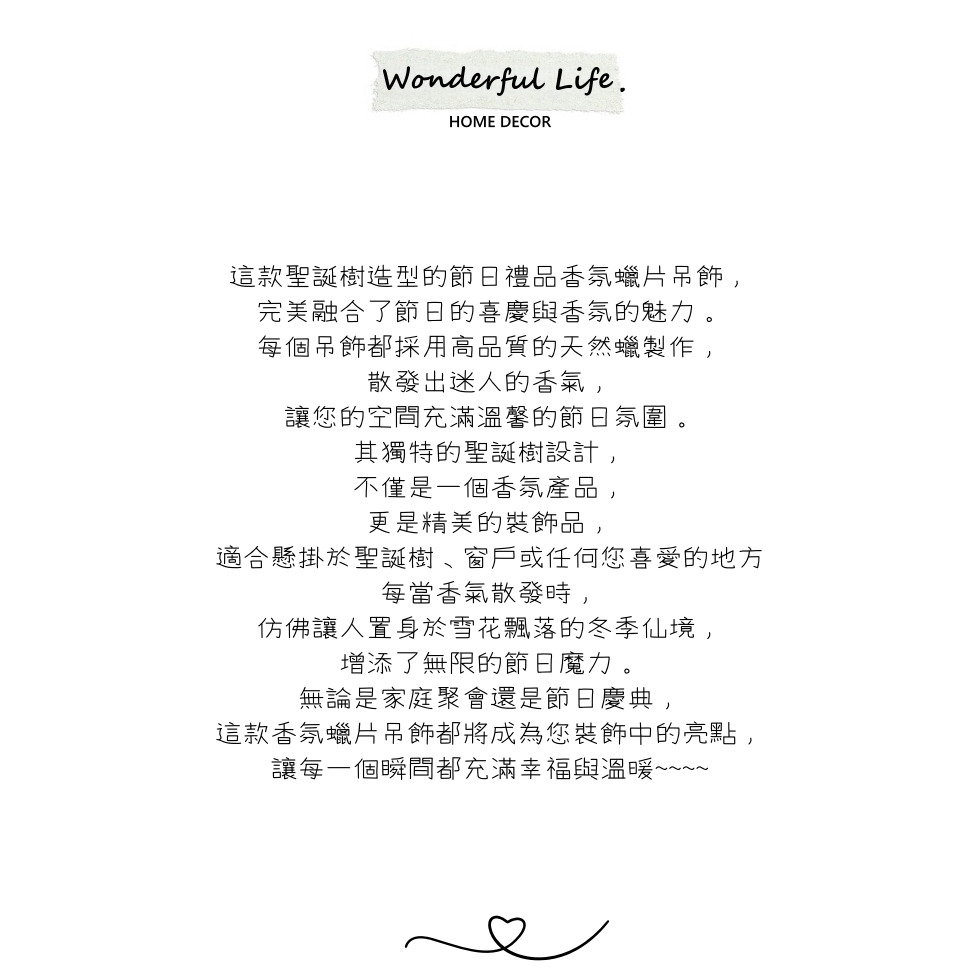 Wonderful Life.
HOME DECOR
這款聖誕樹造型的節日禮品香氛蠟片吊飾，
完美融合了節日的喜慶與香氛的魅力。
每個吊飾都採用高品質的天然蠟製作，
散發出迷人的香氣，
讓您的空間充滿溫馨的節日氛圍。
其獨特的聖誕樹設計，
不僅是一個香氛產品，
更是精美的裝飾品，
適合懸掛於聖誕樹、窗戶或任何您喜愛的地方
每當香氣散發時，
仿佛讓人置身於雪花飄落的冬季仙境，
增添了無限的節日魔力。
無論是家庭聚會還是節日慶典，
這款香氛蠟片吊飾都將成為您裝飾中的亮點，
讓每一個瞬間都充滿幸福與溫暖~~~~